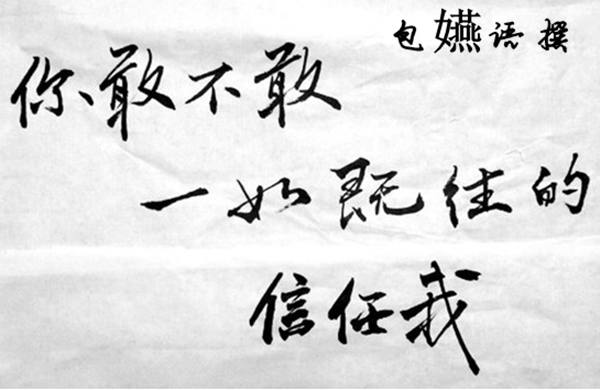 包嬿语撰
你敢不敢
一如既往的
信任我